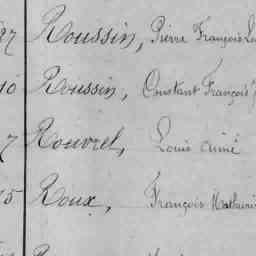 27 Roussin, Pierre François
10 Roussin, Constant François
7 Rouvrel, Louis Aimé
15 Roux, François Mathurin